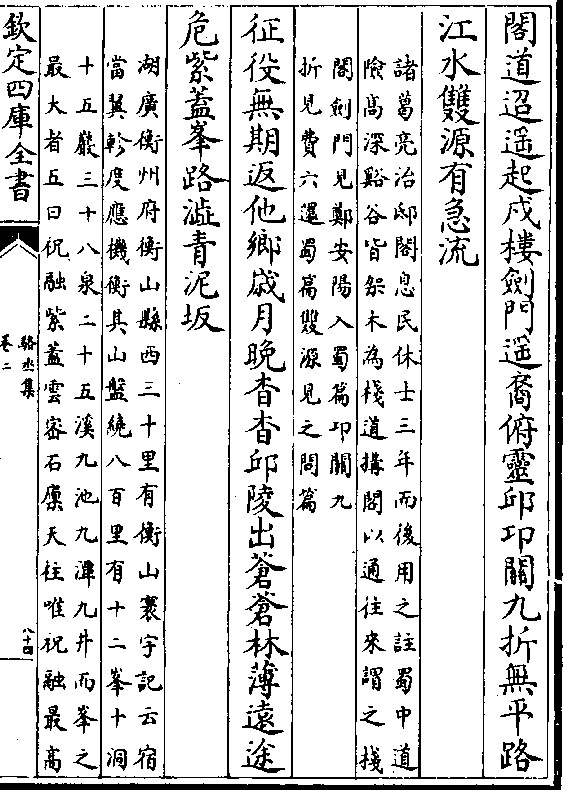 閣道迢遥起戍樓劍門遥裔俯靈邱邛關九折無平路
江水雙源有急流
諸葛亮治邸閣息民休士三年而後用之註蜀中道
險高深谿谷皆架木為棧道搆閣以通往來謂之棧
閣劍門見鄭安陽入蜀篇邛關九
折見費六還蜀篇雙源見之問篇
征役無期返他鄉歲月晚杳杳邱陵出蒼蒼林薄遠途
危紫蓋峯路澁青泥坂
湖廣衡州府衡山縣西三十里有衡山寰宇記云宿
當翼軫度應機衡其山盤繞八百里有十二峯十洞
十五巖三十八泉二十五溪九池九潭九井而峯之
最大者五曰祝融紫蓋雲密石廩天柱唯祝融最高
欽定四庫全書
駱丞集
卷二
八十四